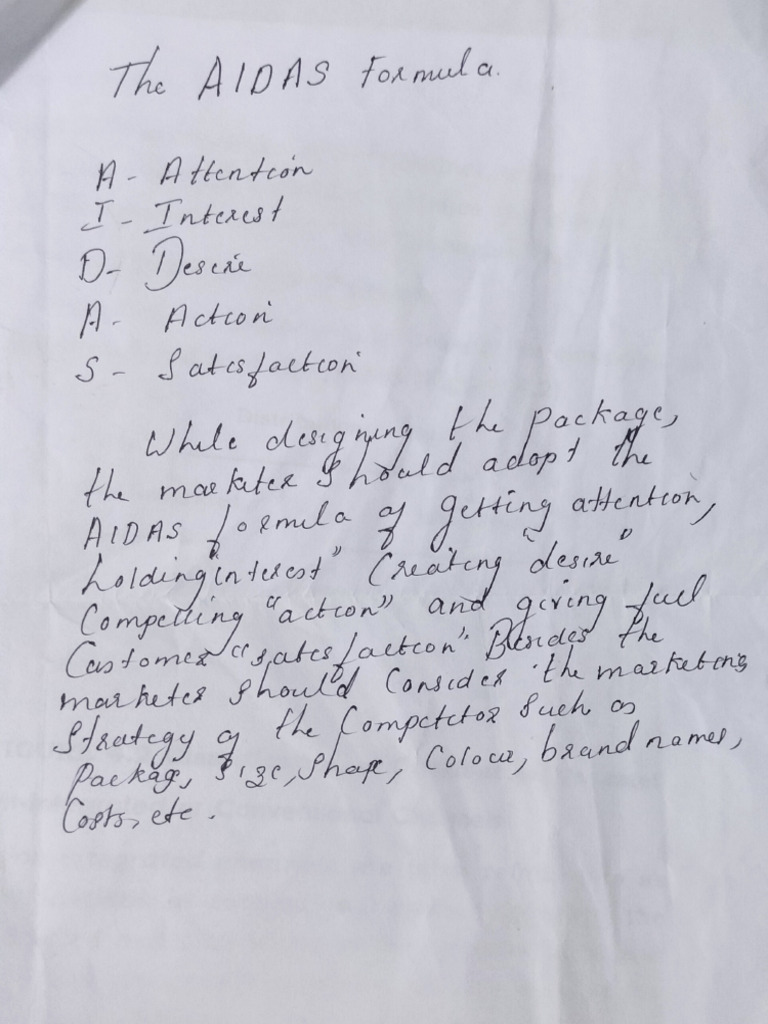 The AIDAS Formula.
A - Attention
I - Interest
D - Desire
A - Action
S - Satisfaction
While designing the package,
the marketer should adopt the
AIDAS formula of getting attention,
holding interest" Creating "desire"
Compelling "action" and giving full
Customer "satisfaction". Besides the
marketer should Consider the marketing
Strategy of the Competitor such as
Package, Size, Shape, Colour, brand names,
Costs, etc.